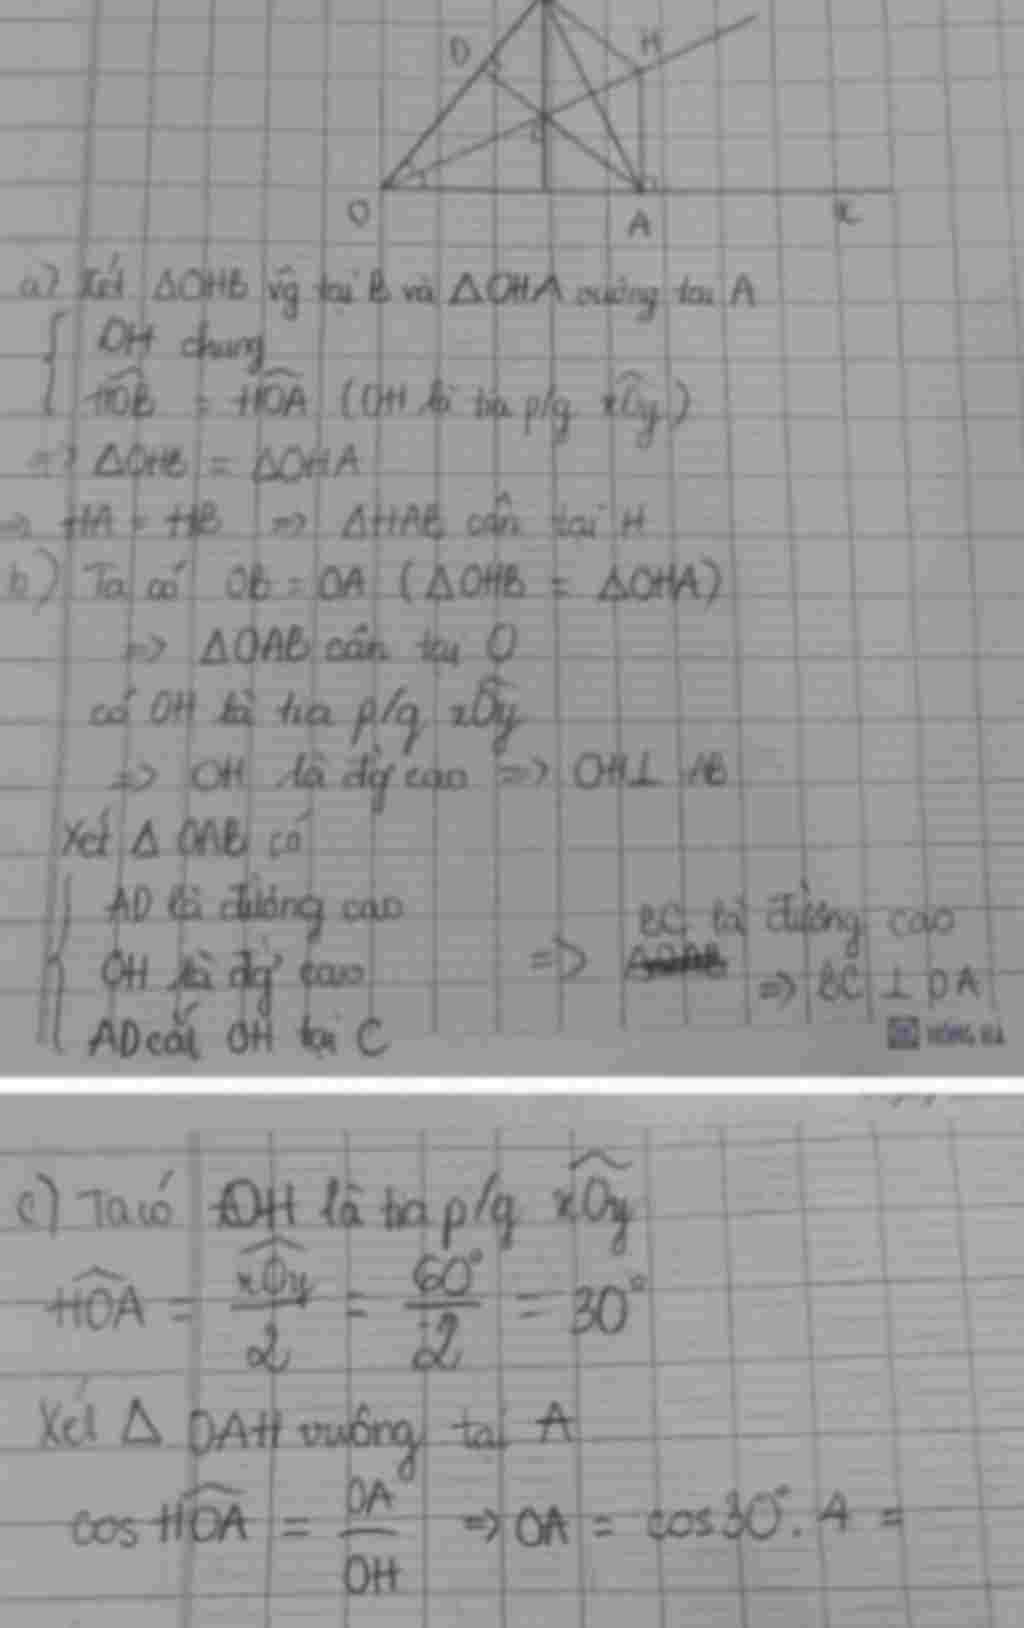 D
H
C
O
A
x
a) Xét ΔOHB vg tại B và ΔOHA vuông tại A
OH chung
HOB = HOA (OH là tia p/g xOy)
=> ΔOHB = ΔOHA
=> HA = HB => ΔHAB cân tại H
b) Ta có OB = OA (ΔOHB = ΔOHA)
=> ΔOAB cân tại O
có OH là tia p/g xOy
=> OH là đg cao => OH ⊥ AB
Xét Δ OAB có
AD là đường cao
OH là đg cao
AD cắt OH tại C
=> BC là đường cao
=> BC ⊥ OA
HỒNG HÀ
c) Ta có OH là tia p/g xOy
HOA = xOy/2 = 60°/2 = 30°
Xét Δ OAH vuông tại A
cos HOA = OA/OH => OA = cos30°. 4 =